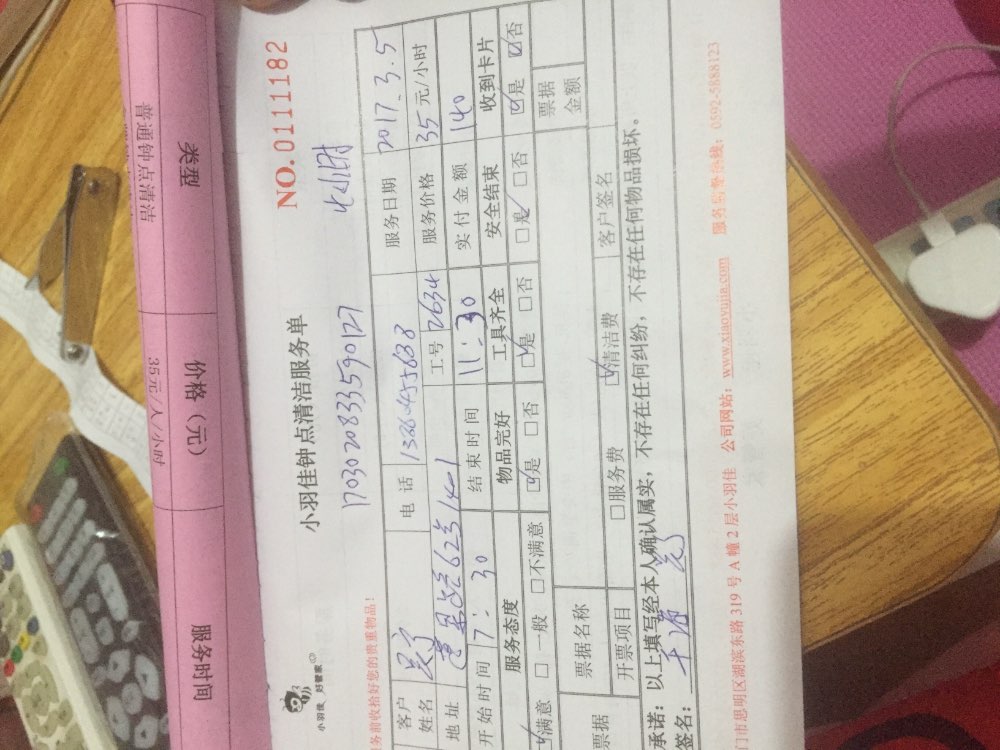 类型
价格（元）
服务时间
普通钟点清洁
35元/人/小时
NO.0111182
小羽佳 好管家
小羽佳钟点清洁服务单
1703020833590127
七小时
务前收拾好您的贵重物品！
客户姓名 吴宁 电话 服务日期 2017.3.5
地址 62号14-1 工号 2634 服务价格 35元/小时
开始时间 7:30 结束时间 11:30 实付金额 140
服务态度 物品完好 工具齐全 安全结束 收到卡片
满意 □一般 □不满意 □是 □否 □是 □否 □是 □否 □是 □否
票据 票据名称 票据金额
开票项目 □服务费 □清洁费 客户签名
承诺：以上填写经本人确认属实，不存在任何纠纷，不存在任何物品损坏。
签名：
门市思明区湖滨东路319号A幢2层小羽佳 公司网站：www.xiaoyujia.com 服务监督热线：0592-5888123